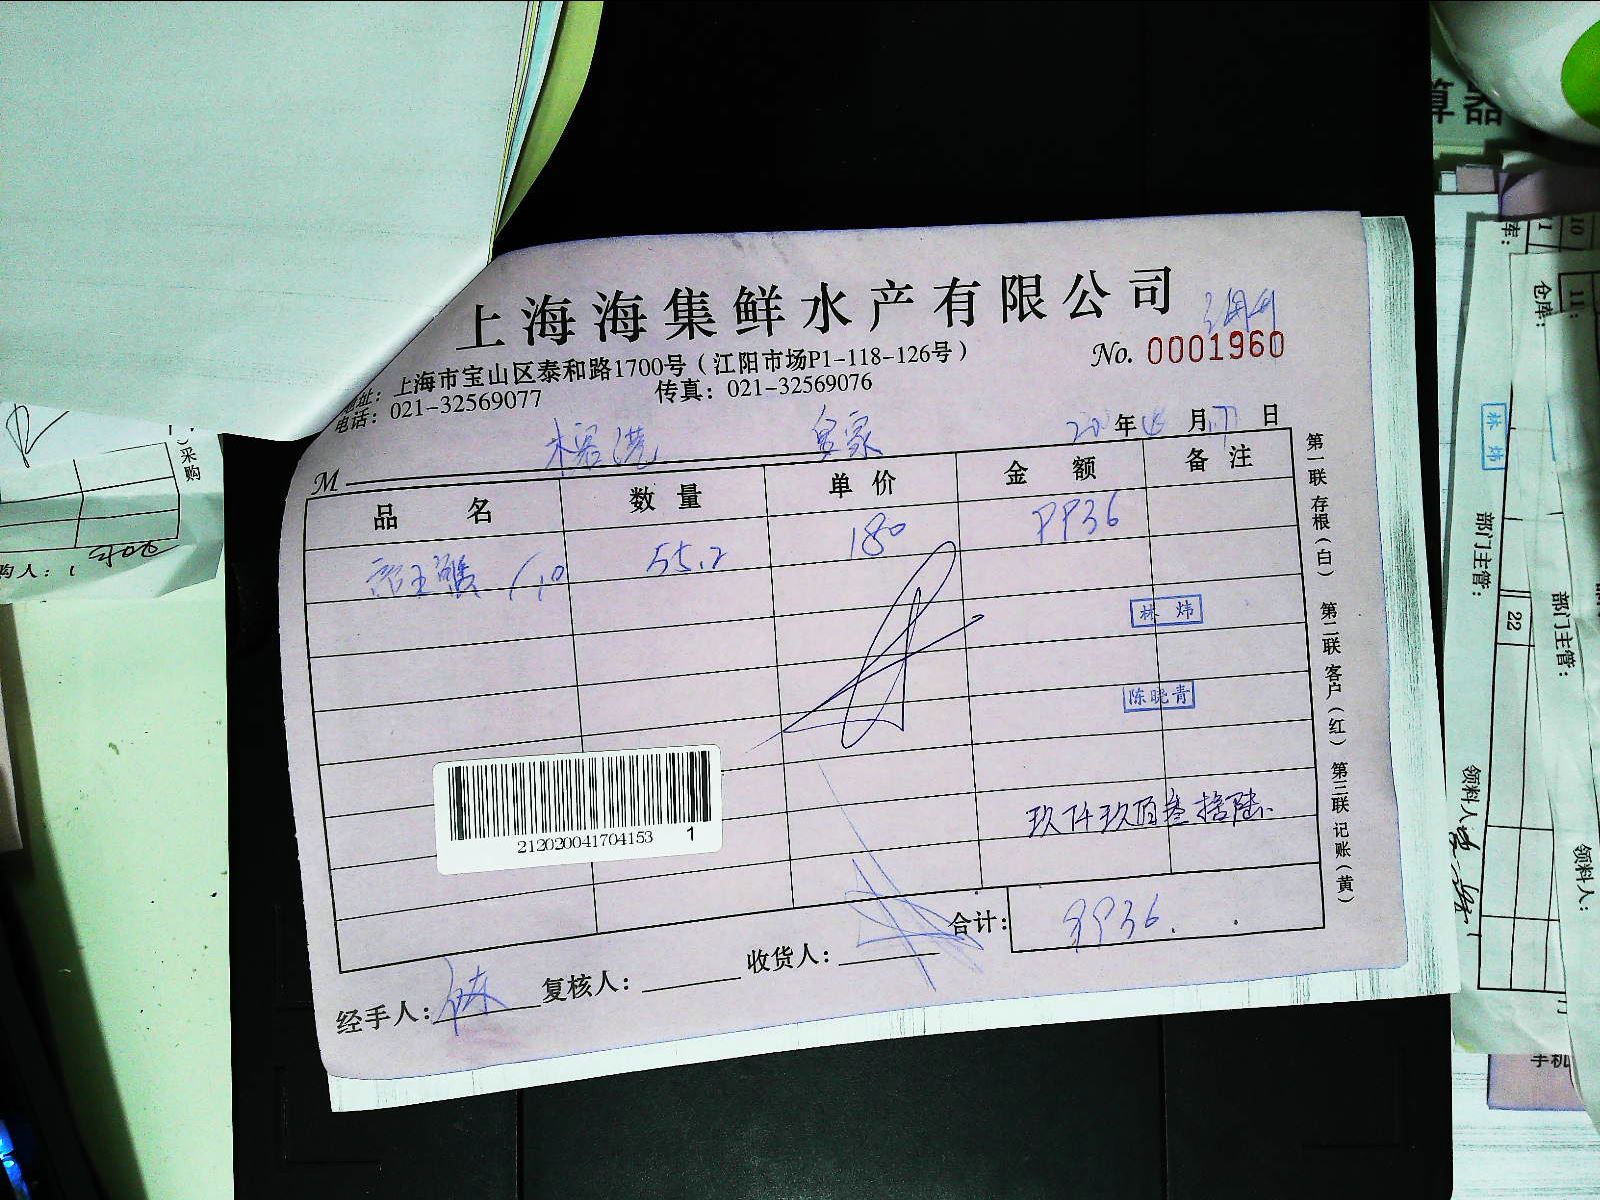 上海海集鲜水产有限公司
No. 0001960
地址：上海市宝山区泰和路1700号（江阳市场P1-118-126号）
电话：021-32569077 传真：021-32569076
皇家
年 月 日
M
品名 数量 单价 金额 备注
55.2 180 9936
林炜
陈晓青
玖仟玖佰叁拾陆
212020041704153 1
合计：9936.
经手人： 复核人： 收货人：
第一联存根（白） 第二联客户（红） 第三联记账（黄）
算器
采购
购人：
仓库：
11:
10
林炜
部门主管：
部门主管：
22
领料人
领料人：
手机